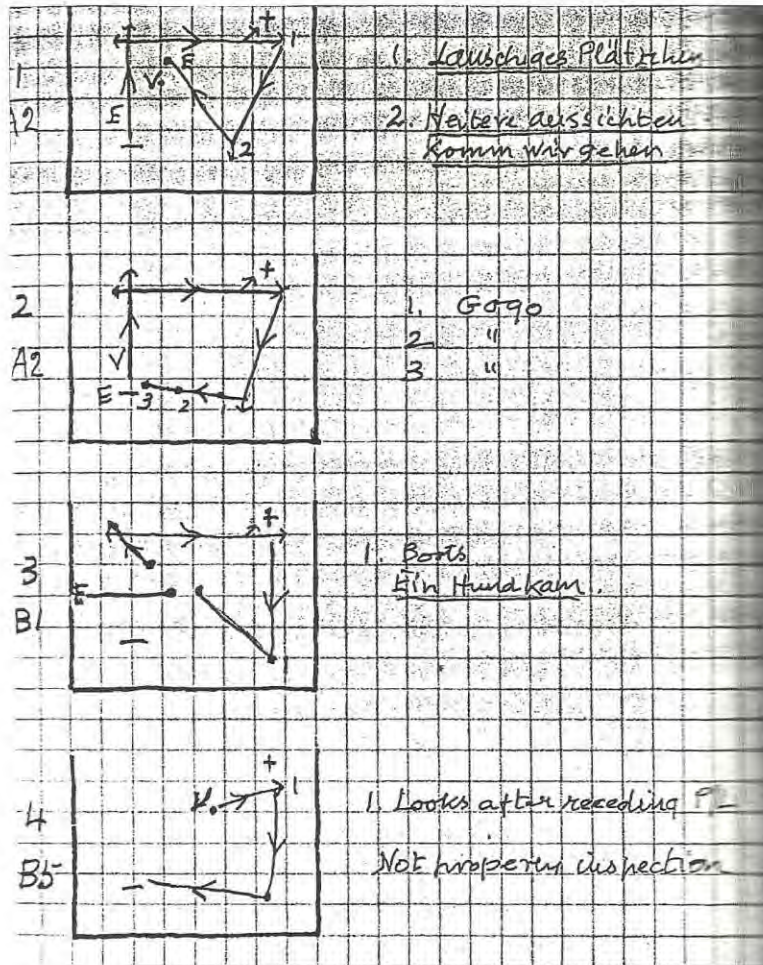 1
A2
+
1
E
V
E
2
1. Lauschiges Plätzchen
2. Heitere aussichten
Komm wir gehen
2
A2
+
V
E
3 2 1
1. Gogo
2 "
3 "
3
B1
+
E
1. Boots
Ein Hund kam..
4
B5
+
V
1
1. Looks after receding
Not properly inspection